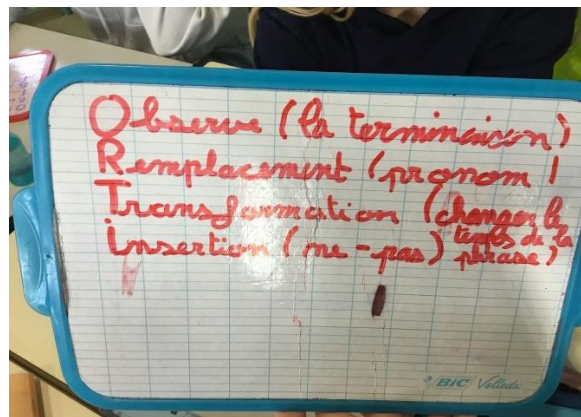 Observe (la terminaison)
Remplacement (pronom)
Transformation (changer le
temps de la
insertion (ne - pas) phrase)
BIC Velleda